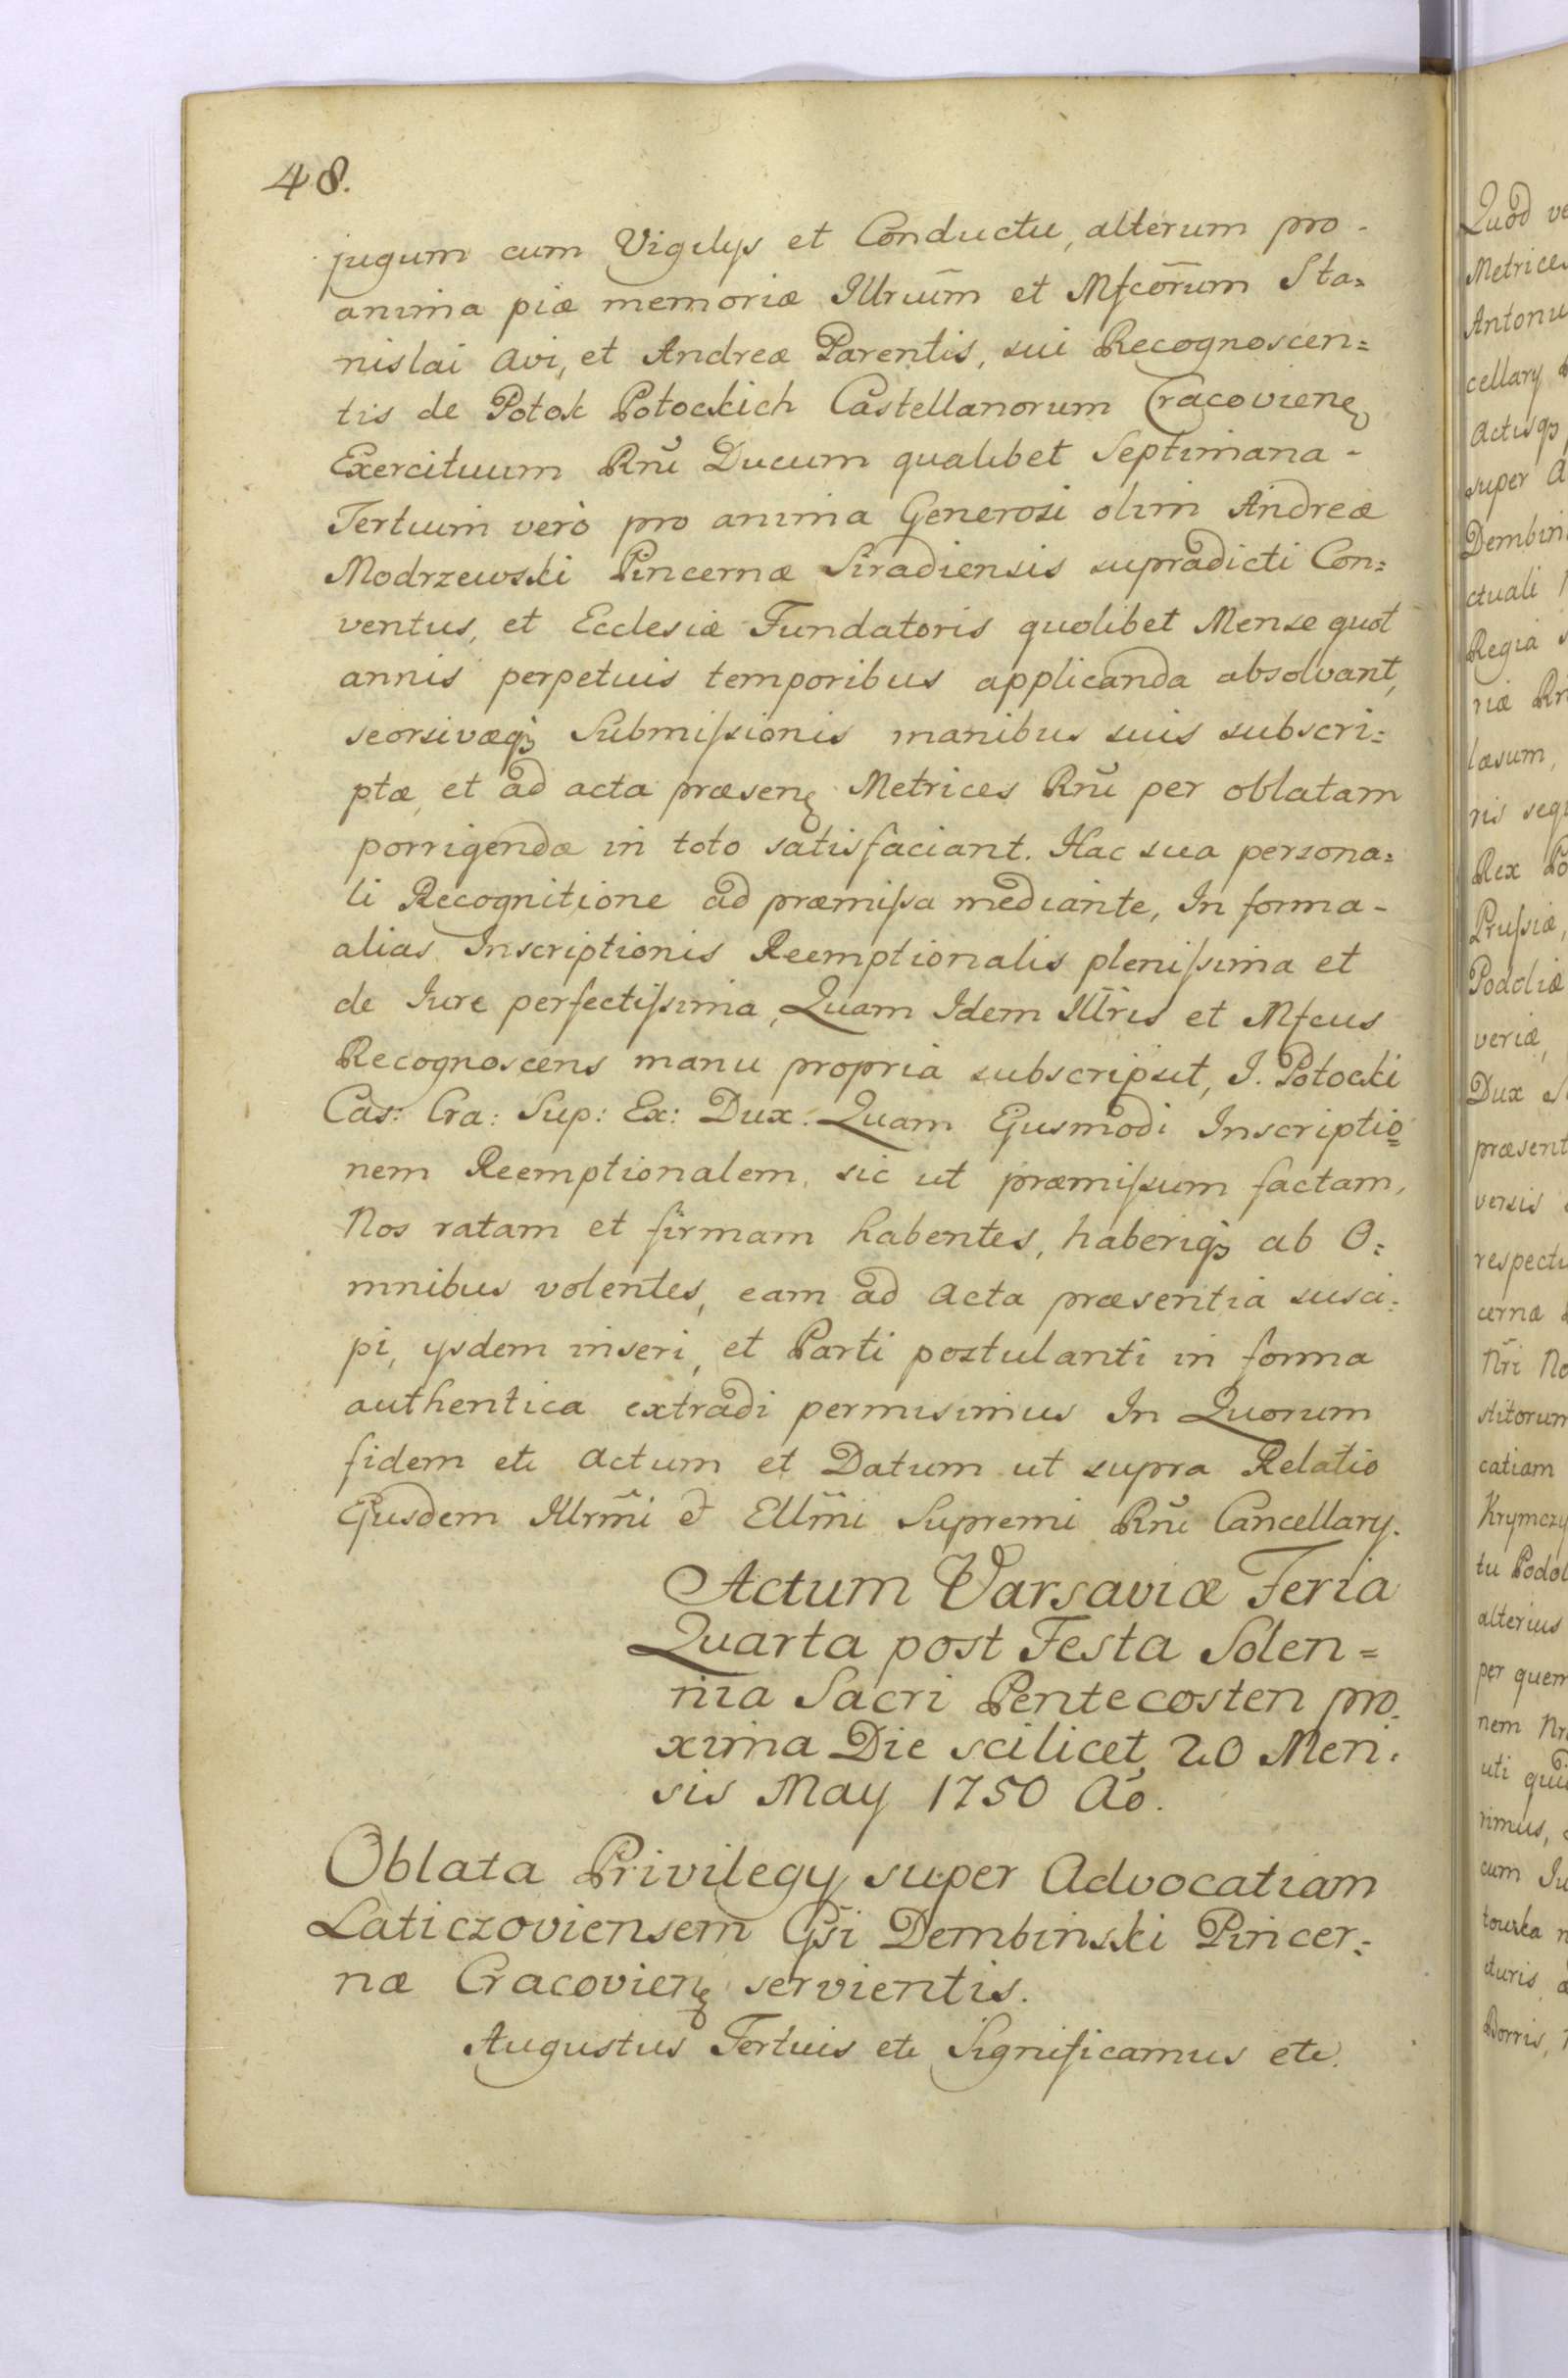 48.
jugum cum Vigilys et Conductu, alterum pro-
anima piæ memoriæ Illrium̄ et Mfcor̄um Sta=
nislai avi, et Andreæ Parentis, sui Recognoscen=
tis de Potok Potockich Castellanorum Cracovienę
Exercituum Rnĩ Ducum qualibet Septimana-
Tertium verò pro anima Generosi olim Andreæ
Modrzewski Pincernæ Siradiensis supradicti Con=
ventus, et Ecclesiæ Fundatoris quolibet Mense quot
annis perpetuis temporibus applicanda absolvant,
seorsivæqꝫ Submiſsionis manibus suis subscri=
ptæ, et ad acta præsenę Metrices Rnĩ per oblatam
porrigendæ in toto satisfaciant. Hac sua persona=
li Recognitione ad præmiſsa mediante, In forma-
alias Inscriptionis Reemptionalis pleniſsima et
de Iure perfectiſsima, Quam Idem Illr̃is et Mfcus
Recognoscens manu propria subscripsit, J. Potocki
Cas: Cra: Sup: Ex: Dux. Quam Ejusmodi Inscriptio=
nem Reemptionalem, sic ut præmiſsum factam,
Nos ratam et firmam habentes, haberiqꝫ ab O=
mnibus volentes, eam ad acta præsentia susci=
pi, ysdem inseri, et Parti postulanti in forma
authentica extradi permisimus In Quorum
fidem etc actum et Datum ut supra Relatio
Ejusdem Illrm̃i et Ellm̃i Supremi Rnĩ Cancellary.
Actum Varsaviæ Feria
Quarta post Festa Solen=
nia Sacri Pentecosten pro=
xima Die scilicet 20 Men=
sis May 1750 Ao.
Oblata Privilegy super Advocatiam
Laticzoviensem Gsi Dembinski Pincer=
næ Cracovienę servientis.
Augustus Tertius etc Significamus etc.
Quod
Metrice
cellary
actisqꝫ
super
Dembin
ctuali
Regia
riæ
læsum,
ris
Rex
Pruſsiæ,
Podoliæ
veriæ,
Dux
præsent
versis
respectu
cernæ
Nr̃i
stitorum
catiam
Krymczy
tu Podol
alterius
per quem
nem
uti
rimus,
cum